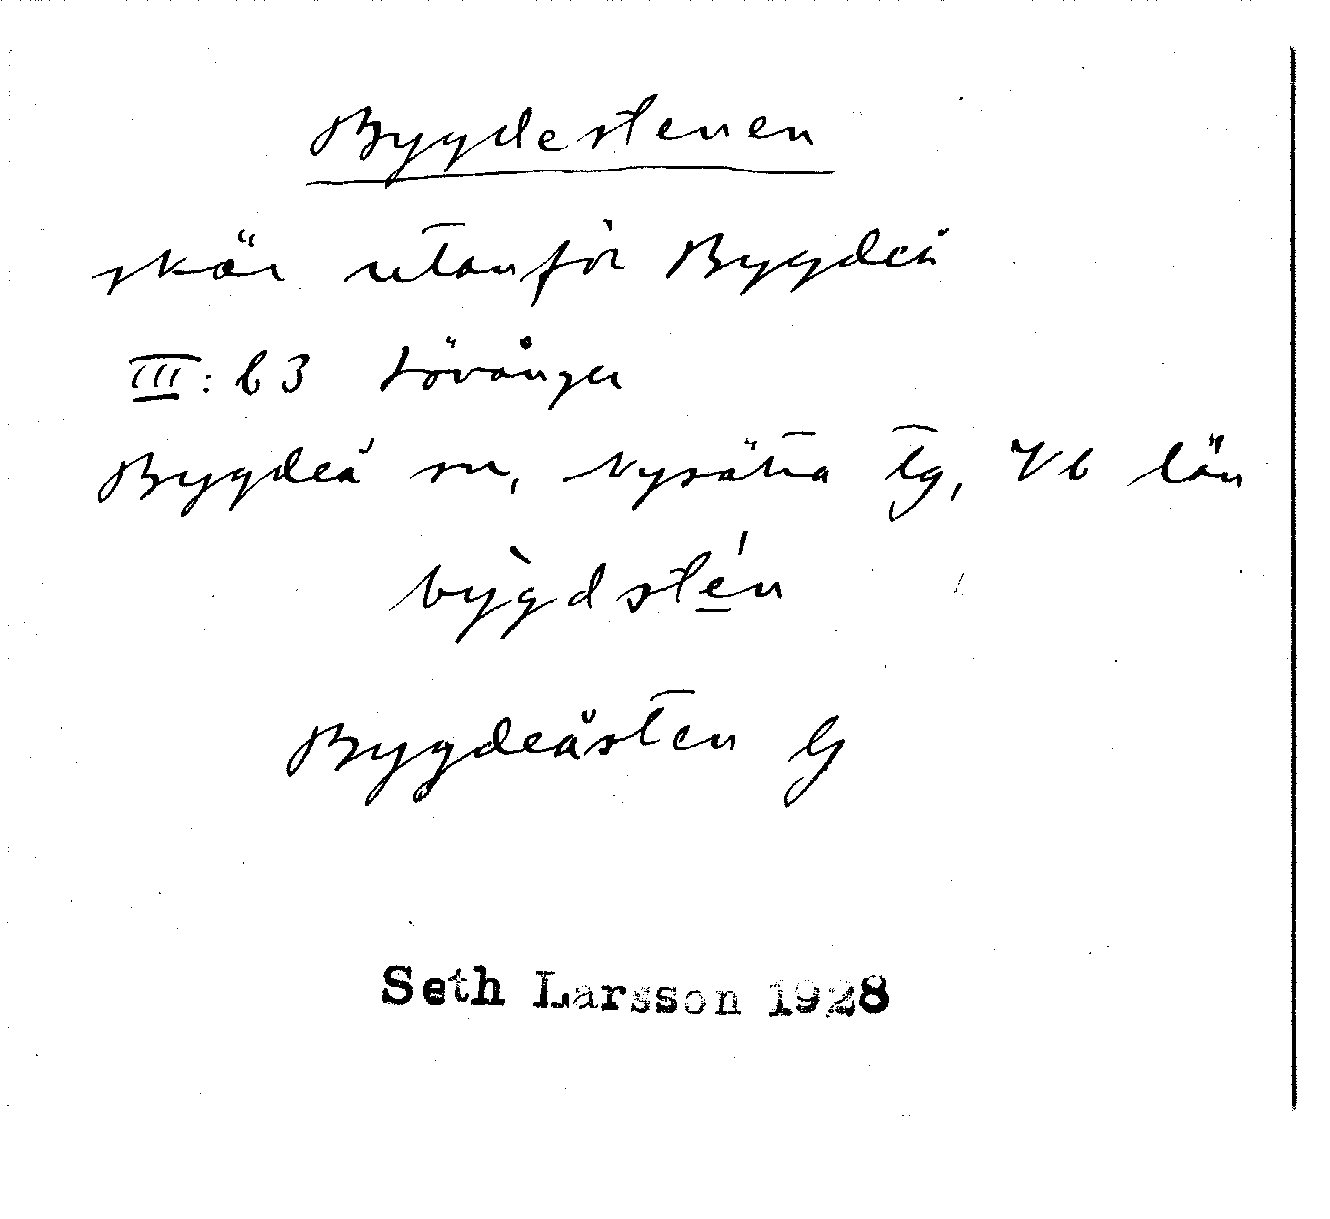 Bygdestenen
skär utanför Bygdeå
III: b3 Lövånger
Bygdeå sn, Nysätra tg, Vb län
bỳgdsté̱n
Bygdeåsten G
Seth Larsson 1928